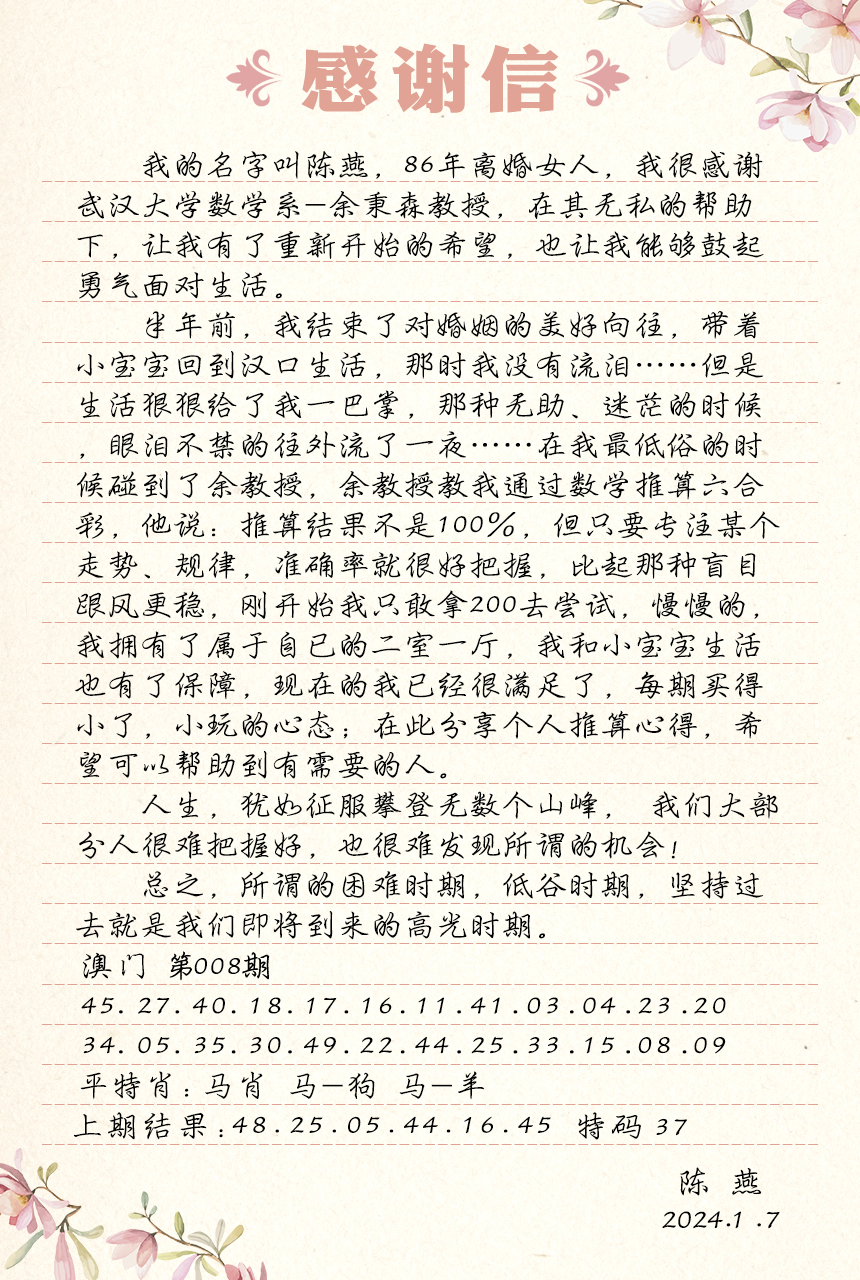 感谢信
我的名字叫陈燕，86年离婚女人，我很感谢
武汉大学数学系—余秉森教授，在其无私的帮助
下，让我有了重新开始的希望，也让我能够鼓起
勇气面对生活。
半年前，我结束了对婚姻的美好向往，带着
小宝宝回到汉口生活，那时我没有流泪……但是
生活狠狠给了我一巴掌，那种无助、迷茫的时候
，眼泪不禁的往外流了一夜……在我最低俗的时
候碰到了余教授，余教授教我通过数学推算六合
彩，他说：推算结果不是100%，但只要专注某个
走势、规律，准确率就很好把握，比起那种盲目
跟风更稳，刚开始我只敢拿200去尝试，慢慢的，
我拥有了属于自已的二室一厅，我和小宝宝生活
也有了保障，现在的我已经很满足了，每期买得
小了，小玩的心态；在此分享个人推算心得，希
望可以帮助到有需要的人。
人生，犹如征服攀登无数个山峰， 我们大部
分人很难把握好，也很难发现所谓的机会！
总之，所谓的困难时期，低谷时期，坚持过
去就是我们即将到来的高光时期。
澳门 第008期
45.27.40.18.17.16.11.41.03.04.23.20
34.05.35.30.49.22.44.25.33.15.08.09
平特肖：马肖 马—狗 马—羊
上期结果：48.25.05.44.16.45 特码 37
陈 燕
2024.1.7